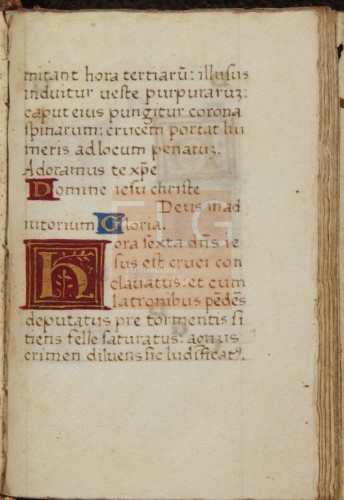 mitant hora tertiarū: illusus
induitur ueste purpuraruʒ:
caput eius pungitur corona
spinarum: crucem portat hu
meris ad locum penaruʒ.
Adoramus te xp̄e
Domine iesu christe
Deus in ad
iutorium Gloria.
Hora sexta dn̄s ie
sus est cruci con
clauatus: et cum
latronibus pēdēs
deputatus pre tormentis si
tiens felle saturatus: agnus
crimen diluens sic ludificatꝰ.